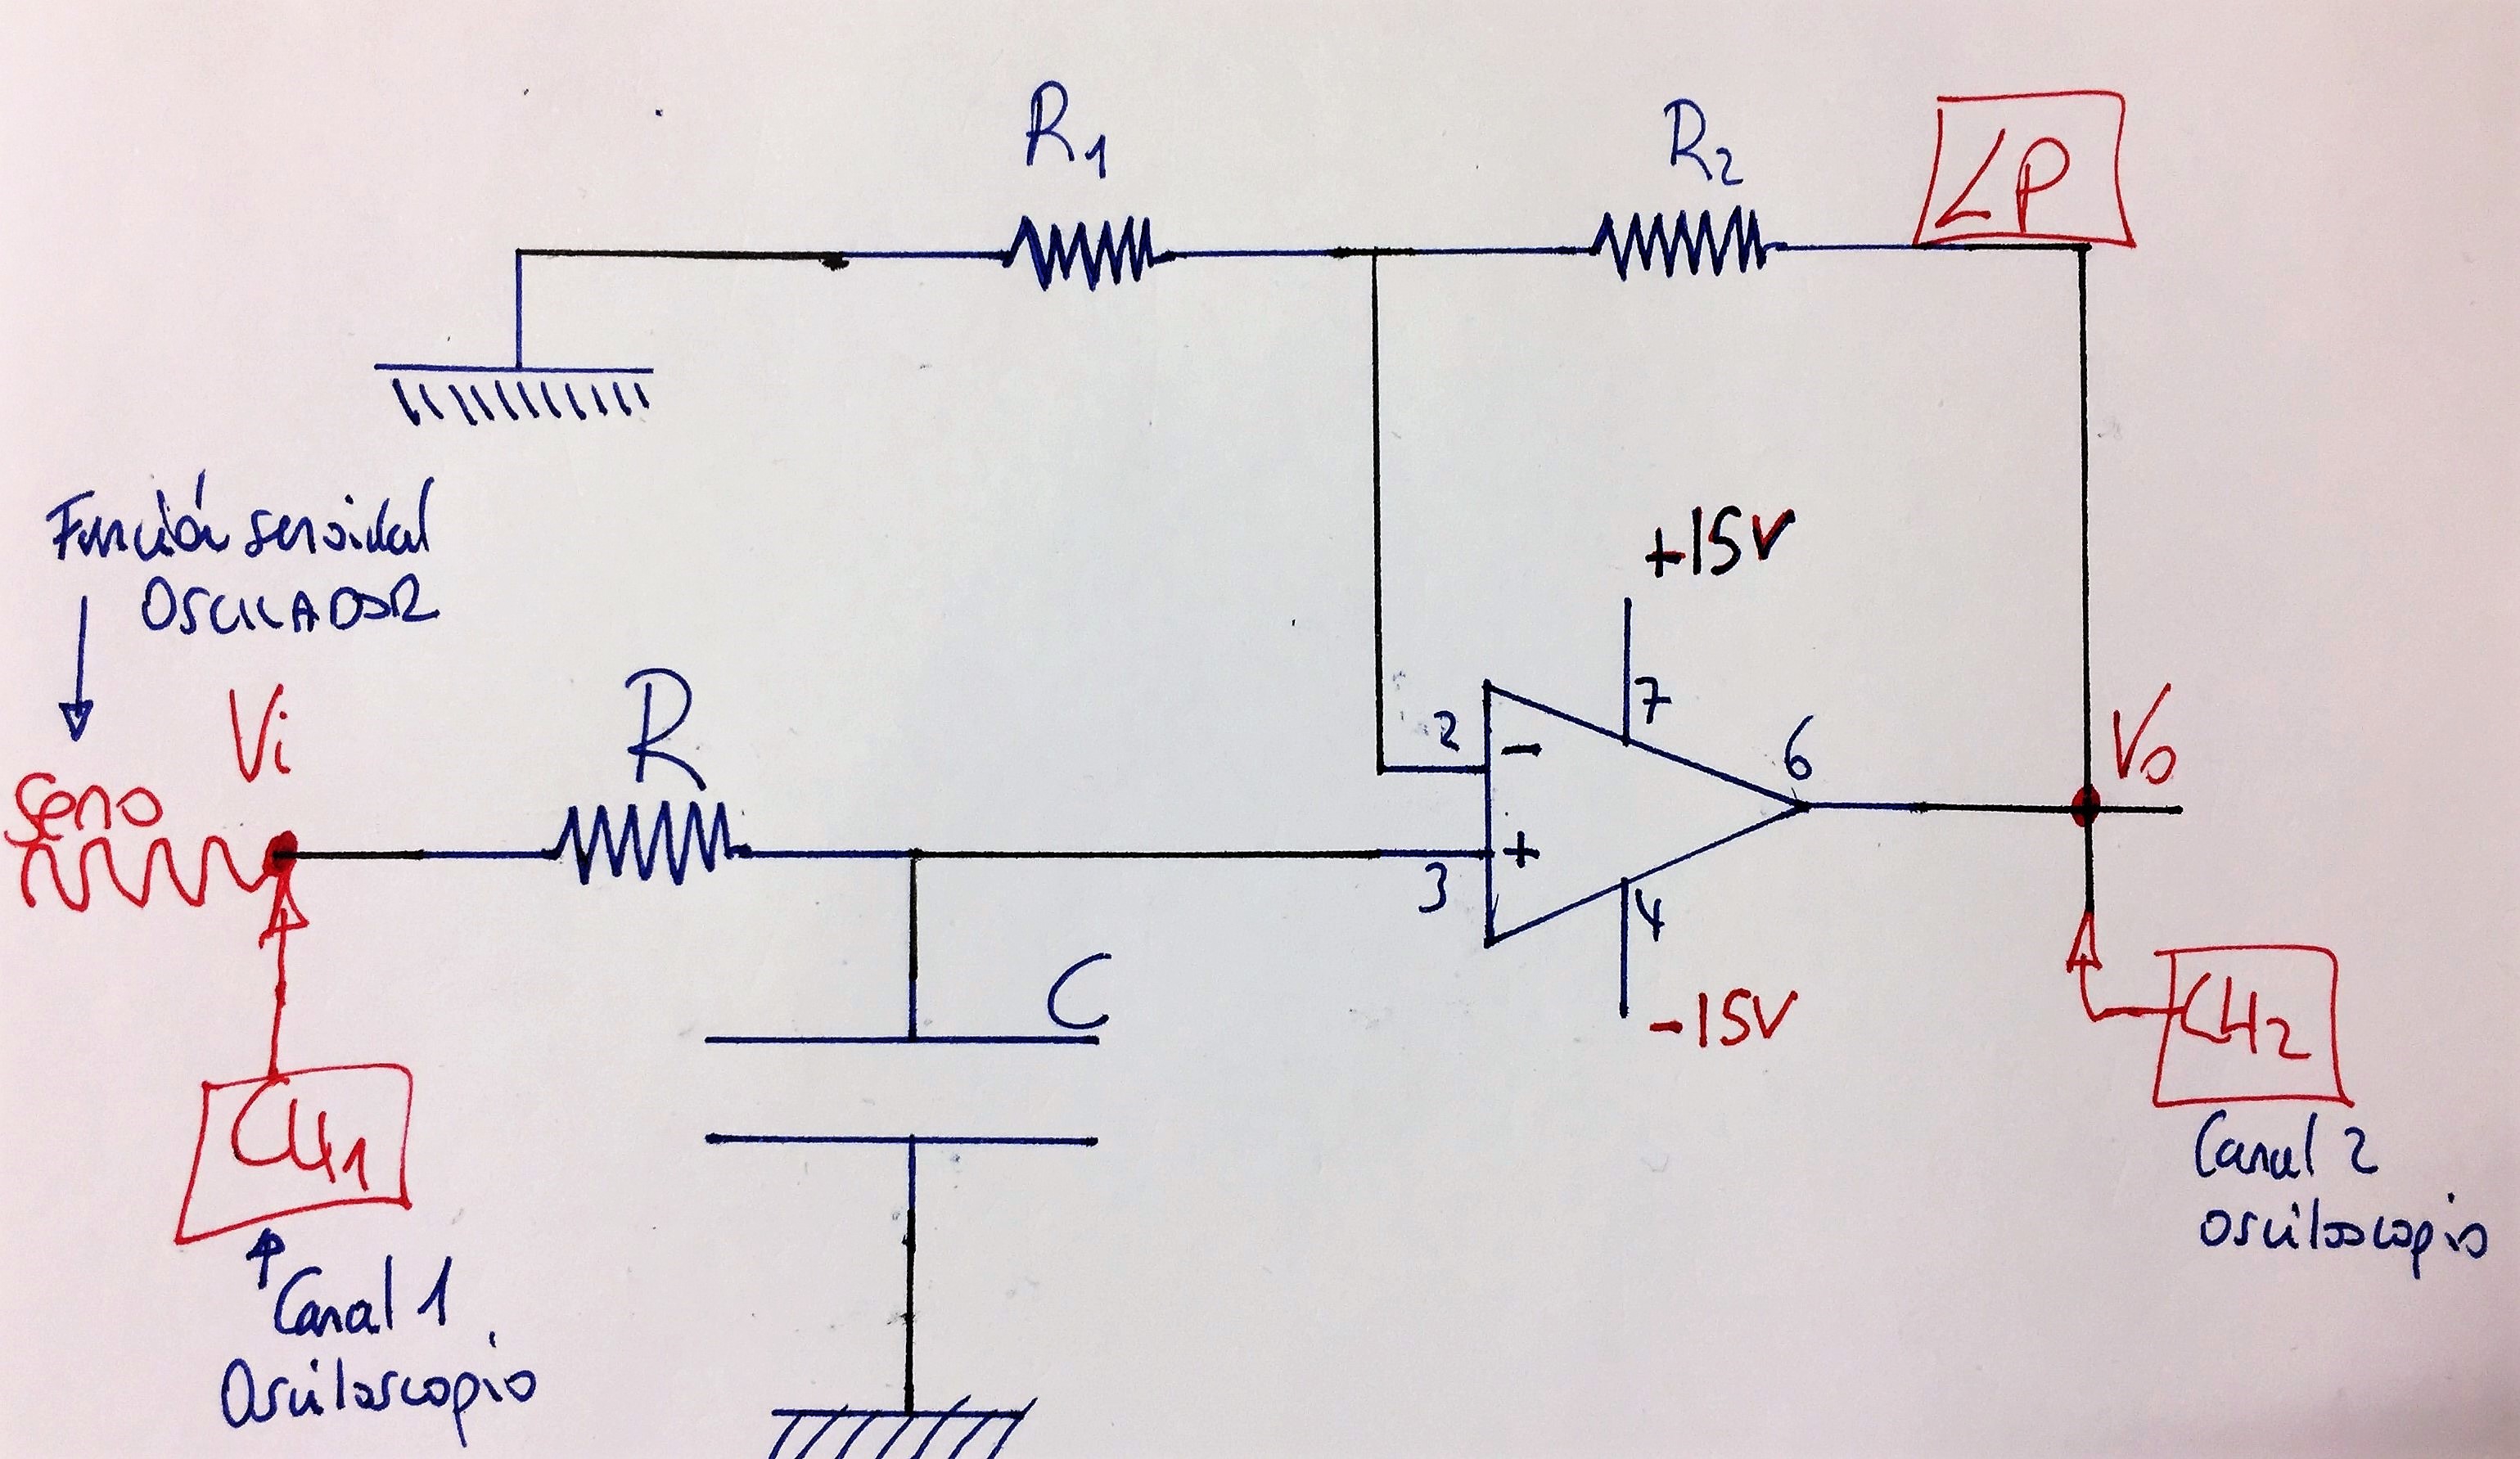 R1
R2
LP
Función senoidal
OSCILADOR
+15V
Vi
R
2
-
7
6
Vo
seno
3
+
4
C
-15V
CH2
CH1
Canal 2
osciloscopio
Canal 1
Osciloscopio